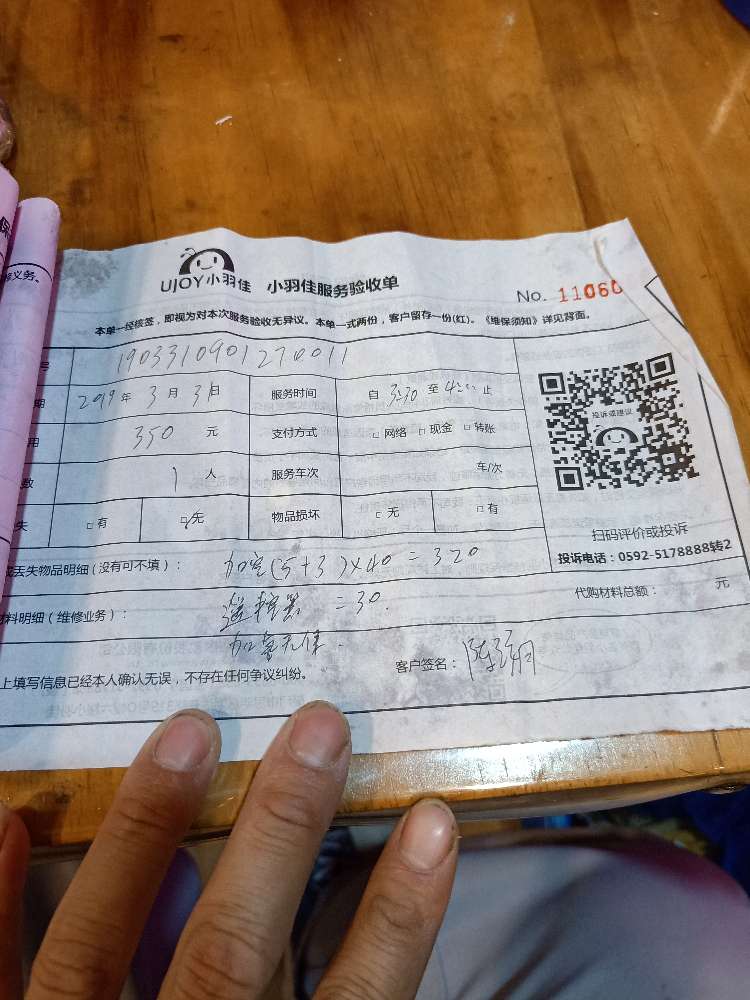 UJOY小羽佳 小羽佳服务验收单
No. 11060
本单一经核签，即视为对本次服务验收无异议。本单一式两份，客户留存一份(红)。《维保须知》详见背面。
保
修义务。
号 1903310901270011
期 2019年3月31日 服务时间 自3:30至4:00止
用 350元 支付方式 □网络 □现金 □转账
数 1人 服务车次 车/次
失 □有 ☑无 物品损坏 □无 □有
投诉或建议
扫码评价或投诉
投诉电话：0592-5178888转2
或丢失物品明细（没有可不填）： 加氟(5+3)×40=320
材料明细（维修业务）： 遥控器 =30. 代购材料总额： 元
加氟无保.
上填写信息已经本人确认无误，不存在任何争议纠纷。 客户签名：